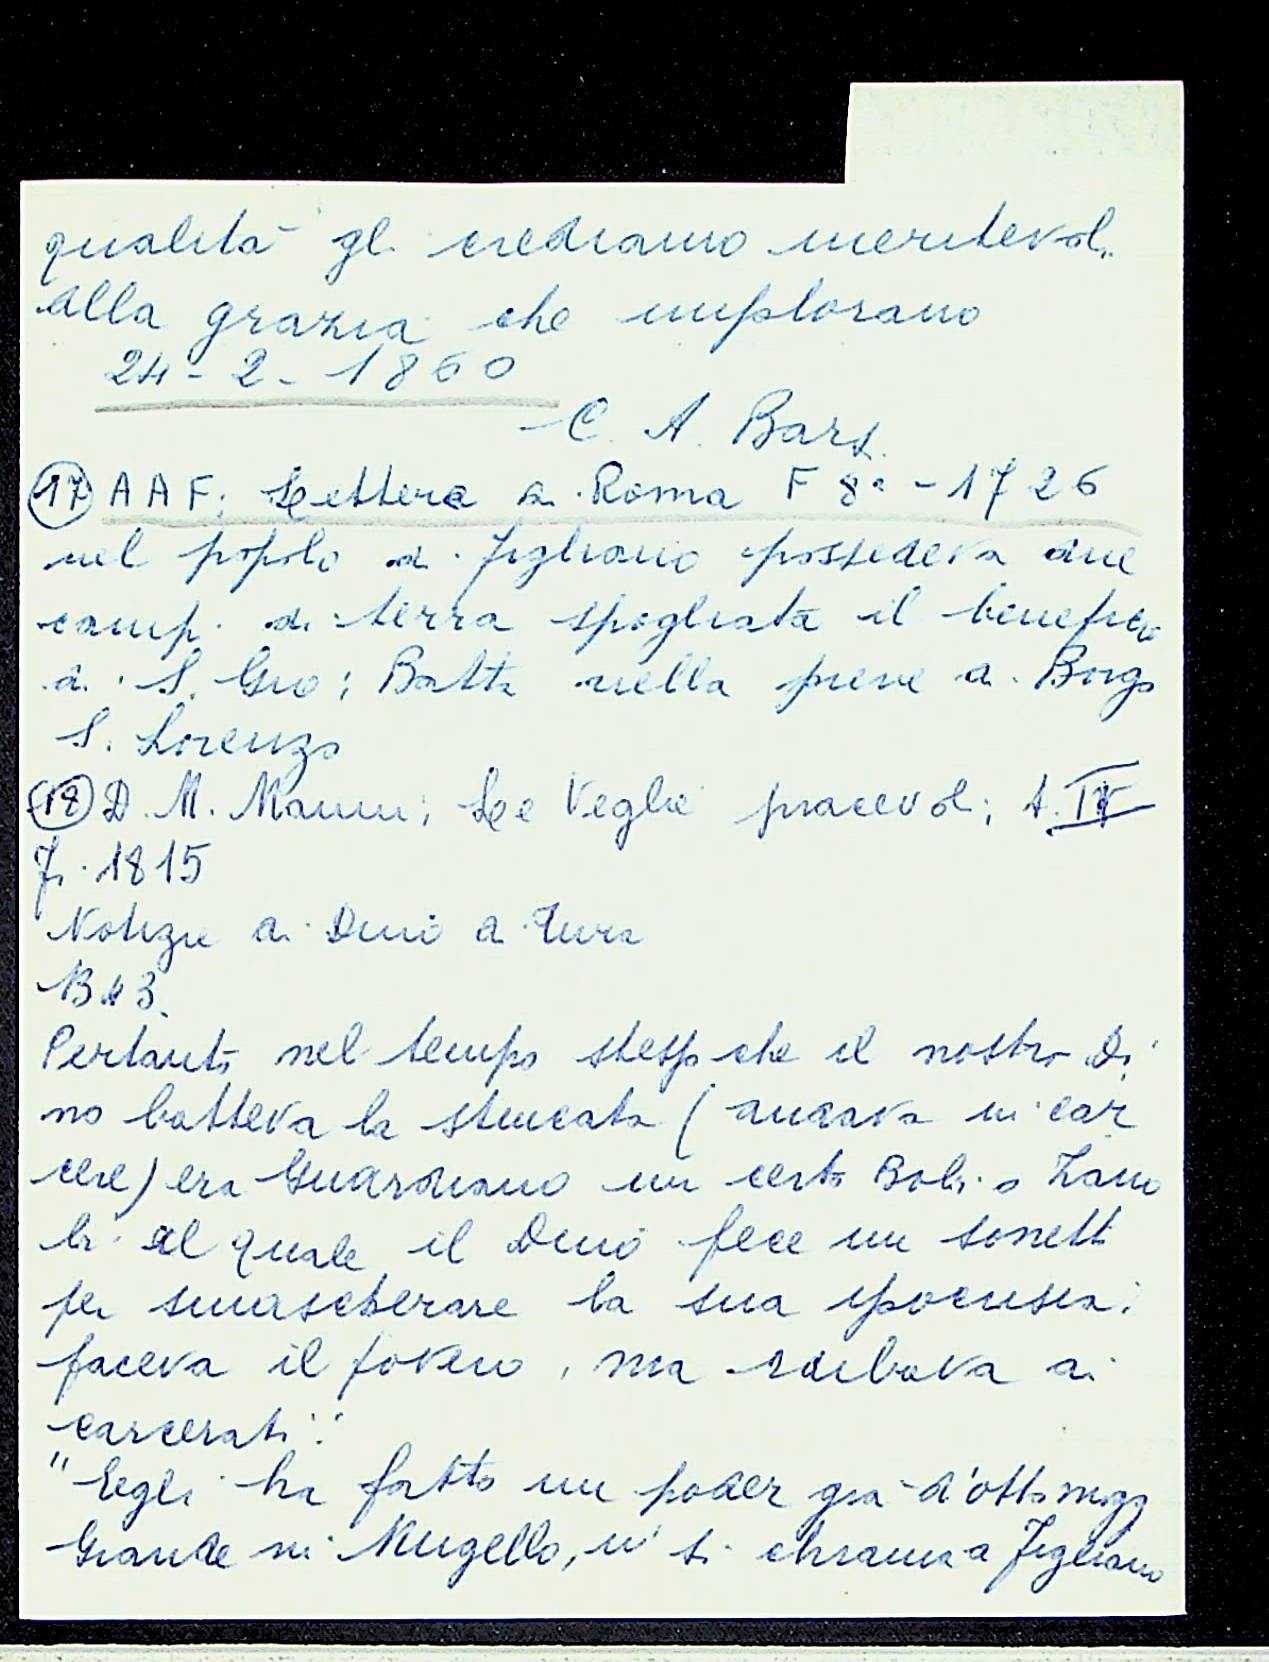 qualità gli crediamo meritevoli
alla grazia che implorano
24-2-1860
C. A. Barsi
(17) AAF: Lettere di Roma F 8º - 1726
nel popolo di Figliano possedeva due
campi di terra spogliata il benefico
di S. Gio: Batta nella pieve di Borgo
S. Lorenzo
(18) D. M. Manni; Le Veglie piacevoli; t. IV
Fi. 1815
Notizie di Dino di Tura
B 43.
Pertanto nel tempo stesso che il nostro Di
no batteva la stincata (andava in car
cere) era Guardiano un certo Bobi o Zano
bi al quale il Dino fece un sonetto
per smascherare la sua ipocrisia:
faceva il povero, ma rubava ai
carcerati:
"Egli ha fatto un poder già d'otto moggi
Grande in Mugello, u' si chiama Figliano